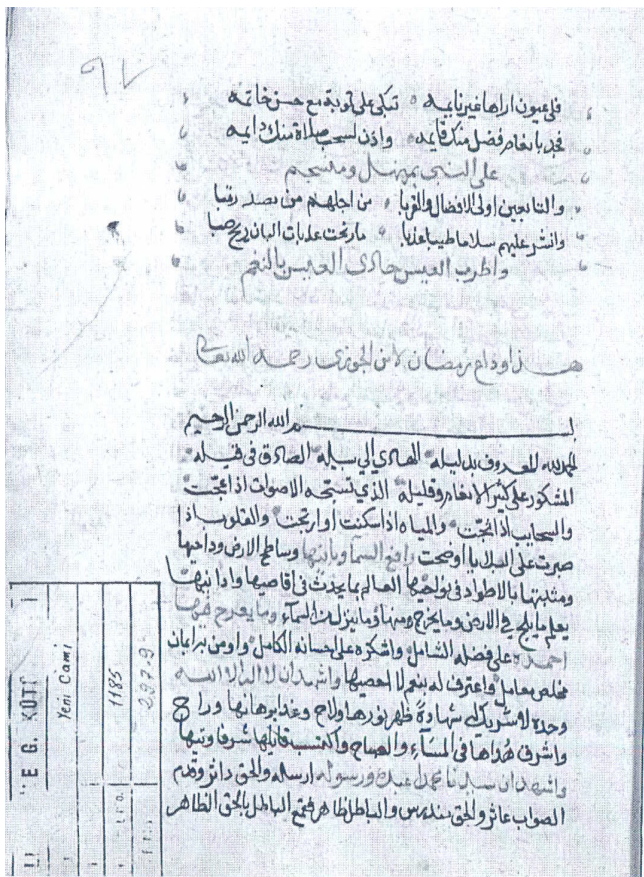 ٩٧
فلي عيون اراها غير نايمه تبكي على توبة مع حسن خاتمه
فجد بانعام فضل منك قايمه واذن لسحب صلاة منك دايمه
على النبي بمنهل ومنسجم
والتابعين اولى الافضال والقربا من اجلهم من
وانثر عليهم سلاما طيبا عذبا ما رنحت عذبات البان ريح صبا
واطرب العيس حادي العيس بالنغم
هذا وداع رمضان لابن الجوزي رحمه الله تعالى
بسم الله الرحمن الرحيم
الحمد لله المعروف بدليله الهادي الى سبيله الصادق في قيله
المشكور على كثير الانعام وقليله الذي تسبحه الاصوات اذا عجت
والسحايب اذا ثجت والمياه اذا سكنت او ارتجت والقلوب اذ
صبرت على البلايا او ضجت رافع السما وبانيها وساطح الارض وداحيها
ومثبتها بالاطواد في نواحيها العالم بما يحدث في اقاصيها وادانيها
يعلم ما يلج في الارض وما يخرج منها وما ينزل من السماء وما يعرج فيها
احمده على فضله الشامل واشكره على احسانه الكامل واومن به ايمان
مخلص معامل واعترف له بنعم لا احصيها واشهد ان لا اله الا الله
وحده لا شريك له شهادة ظهر نورها ولاح وغدا برهانها وراح
واشرق هداها في المساء والصباح واكتسب قايلها شرفا وتيها
واشهد ان سيدنا محمدا عبده ورسوله ارسله والحق داثر وقدم
الصواب عاثر والحق مندرس والباطل ظاهر فقمع الباطل بالحق الظاهر
E G. KÜT
Yeni Cami
1185
297.9